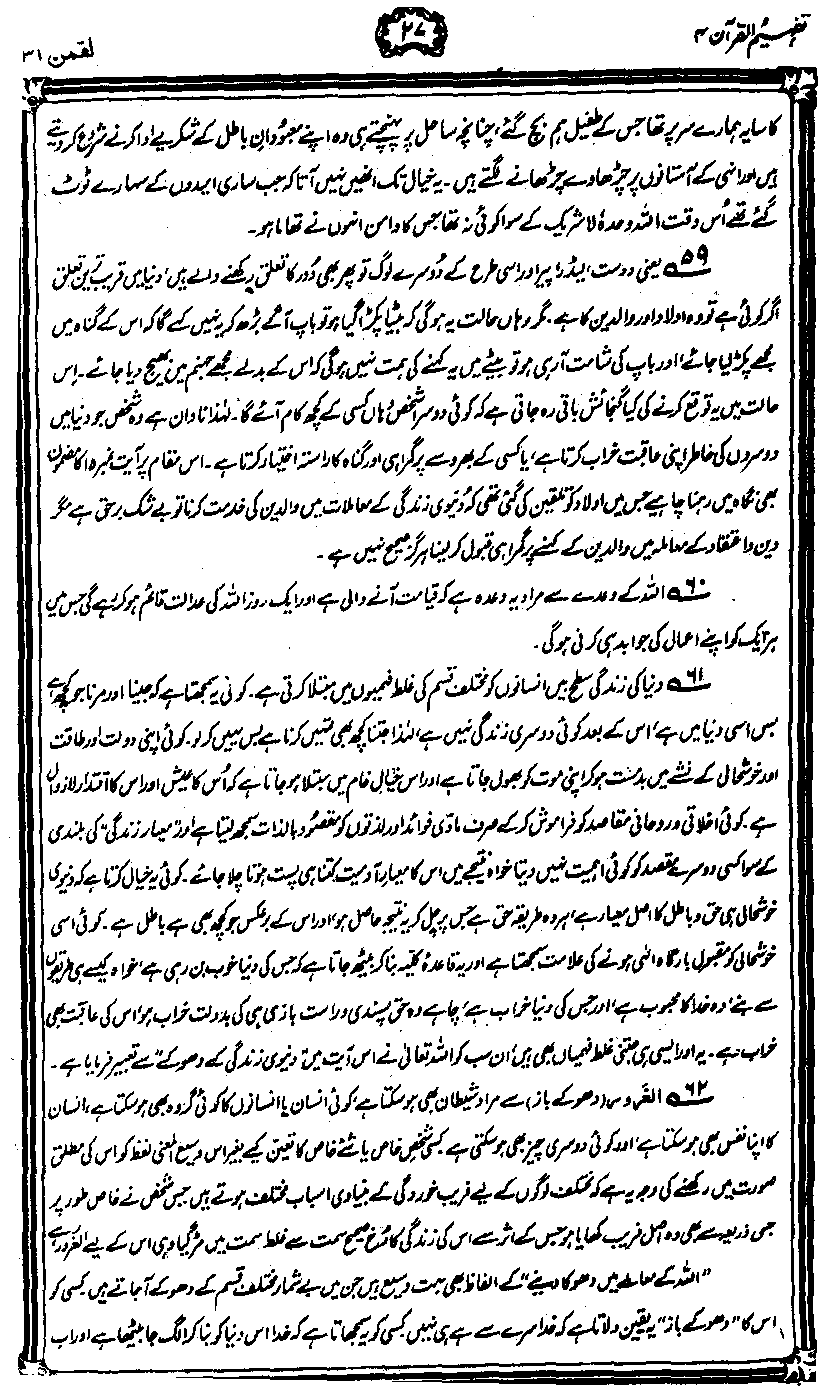 تفہیم القرآن ۴
۲۷
لقمٰن ۳۱
کا سایہ ہمارے سر پر تھا جس کے طفیل ہم بچ گئے، چنانچہ ساحل پر پہنچتے ہی وہ اپنے معبودانِ باطل کے شکریے ادا کرنے شروع کر دیتے
ہیں اور انہی کے آستانوں پر چڑھاوے چڑھانے لگتے ہیں۔ یہ خیال تک انھیں نہیں آتا کہ جب ساری امیدوں کے سہارے ٹوٹ
گئے تھے اُس وقت اللہ وحدہٗ لا شریک کے سوا کوئی نہ تھا جس کا دامن انہوں نے تھاما ہو۔
۵۹ یعنی دوست، لیڈر، پیر اور اسی طرح کے دُوسرے لوگ تو پھر بھی دُور کا تعلق رکھنے والے ہیں، دنیا میں قریب ترین تعلق
اگر کوئی ہے تو وہ اولاد اور والدین کا ہے۔ مگر وہاں حالت یہ ہوگی کہ بیٹا پکڑا گیا ہو تو باپ آگے بڑھ کر یہ نہیں کہے گا کہ اس کے گناہ میں
مجھے پکڑ لیا جائے، اور باپ کی شامت آ رہی ہو تو بیٹے میں یہ کہنے کی ہمت نہیں ہوگی کہ اس کے بدلے مجھے جہنم میں بھیج دیا جائے۔ اِس
حالت میں یہ توقع کرنے کی کیا گنجائش باقی رہ جاتی ہے کہ کوئی دوسرا شخص وُہاں کسی کے کچھ کام آئے گا۔ لہٰذا نادان ہے وہ شخص جو دنیا میں
دوسروں کی خاطر اپنی عاقبت خراب کرتا ہے، یا کسی کے بھروسے پر گمراہی اور گناہ کا راستہ اختیار کرتا ہے۔ اس مقام پر آیت نمبر ۱۵ کا مضمون
بھی نگاہ میں رہنا چاہیے جس میں اولاد کو تلقین کی گئی تھی کہ دُنیوی زندگی کے معاملات میں والدین کی خدمت کرنا تو بے شک برحق ہے مگر
دین و اعتقاد کے معاملہ میں والدین کے کہنے پر گمراہی قبول کر لینا ہرگز صحیح نہیں ہے۔
۶۰ اللہ کے وعدے سے مراد یہ وعدہ ہے کہ قیامت آنے والی ہے اور ایک روز اللہ کی عدالت قائم ہو کر رہے گی جس میں
ہر ایک کو اپنے اعمال کی جوابدہی کرنی ہوگی۔
۶۱ دنیا کی زندگی سطح بیں انسانوں کو مختلف قسم کی غلط فہمیوں میں مبتلا کرتی ہے۔ کوئی یہ سمجھتا ہے کہ جینا اور مرنا جو کچھ ہے
بس اسی دنیا میں ہے، اس کے بعد کوئی دوسری زندگی نہیں ہے، لہٰذا جتنا کچھ بھی تمہیں کرنا ہے بس یہیں کر لو۔ کوئی اپنی دولت اور طاقت
اور خوشحالی کے نشے میں بدمست ہو کر اپنی موت کو بھول جاتا ہے اور اس خیالِ خام میں مبتلا ہو جاتا ہے کہ اُس کا عیش اور اس کا اقتدار لازوال
ہے۔ کوئی اخلاقی و روحانی مقاصد کو فراموش کر کے صرف مادّی فوائد اور لذتوں کو مقصود بالذات سمجھ لیتا ہے اور "معیارِ زندگی" کی بلندی
کے سوا کسی دوسرے مقصد کو کوئی اہمیت نہیں دیتا خواہ نتیجے میں اس کا معیارِ آدمیت کتنا ہی پست ہوتا چلا جائے۔ کوئی یہ خیال کرتا ہے کہ دنیوی
خوشحالی ہی حق و باطل کا اصل معیار ہے، ہر وہ طریقہ حق ہے جس پر چل کر یہ نتیجہ حاصل ہو، اور اس کے برعکس جو کچھ بھی ہے باطل ہے۔ کوئی اسی
خوشحالی کو مقبولِ بارگاہِ الٰہی ہونے کی علامت سمجھتا ہے اور یہ قاعدۂ کلیہ بنا کر بیٹھ جاتا ہے کہ جس کی دنیا خوب بن رہی ہے، خواہ کیسے ہی طریقوں
سے بنے، وہ خدا کا محبوب ہے، اور جس کی دنیا خراب ہے، چاہے وہ حق پسندی و راست بازی ہی کی بدولت خراب ہو، اس کی عاقبت بھی
خراب ہے۔ یہ اور ایسی ہی جتنی غلط فہمیاں بھی ہیں، اُن سب کو اللہ تعالیٰ نے اس آیت میں "دنیوی زندگی کے دھوکے" سے تعبیر فرمایا ہے۔
۶۲ الغَرور (دھوکے باز) سے مراد شیطان بھی ہو سکتا ہے، کوئی انسان یا انسانوں کا کوئی گروہ بھی ہو سکتا ہے، انسان
کا اپنا نفس بھی ہو سکتا ہے، اور کوئی دوسری چیز بھی ہو سکتی ہے۔ کسی شخصِ خاص یا شئے خاص کا تعین کیے بغیر اس وسیع المعنی لفظ کو اس کی مطلق
صورت میں رکھنے کی وجہ یہ ہے کہ مختلف لوگوں کے لیے فریب خوردگی کے بنیادی اسباب مختلف ہوتے ہیں۔ جس شخص نے خاص طور پر
جس ذریعہ سے بھی وہ اصل فریب کھایا ہو جس کے اثر سے اس کی زندگی کا رُخ صحیح سمت سے غلط سمت میں مڑ گیا وہی اس کے لیے الغَرور ہے۔
"اللہ کے معاملے میں دھوکا دینے" کے الفاظ بھی بہت وسیع ہیں جن میں بے شمار مختلف قسم کے دھوکے آ جاتے ہیں۔ کسی کو
اس کا "دھوکے باز" یہ یقین دلاتا ہے کہ خدا سرے سے ہے ہی نہیں۔ کسی کو یہ سمجھاتا ہے کہ خدا اس دنیا کو بنا کر الگ جا بیٹھا ہے اور اب